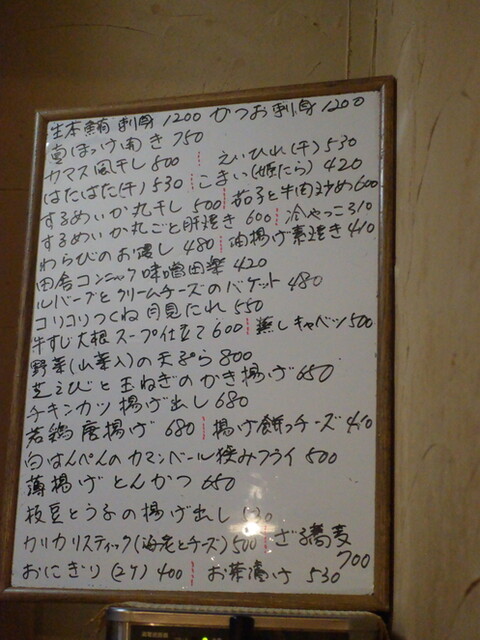 生本鮪刺身 1200 かつお刺身 1200
真ほっけ開き 750
カマス風干し 500 えいひれ(干) 530
はたはた(干) 530 こまい(姫たら) 420
するめいか丸干し 500 茄子と牛肉炒め 600
するめいか丸ごと肝焼き 600 冷やっこ 310
わらびのお浸し 480 油揚げ素焼き 410
田舎コンニャク味噌田楽 420
ルバーブとクリームチーズのバケット 480
コリコリつくね月見たれ 550
牛すじ大根スープ仕立て 600 蒸しキャベツ 500
野菜(山菜入)の天ぷら 800
芝えびと玉ねぎのかき揚げ 650
チキンカツ揚げ出し 680
若鶏唐揚げ 680 揚げ餅チーズ 410
白はんぺんのカマンベール挟みフライ 500
薄揚げとんかつ 650
枝豆とう子の揚げ出し
カリカリスティック(海老とチーズ) 500 ざる蕎麦 700
おにぎり(2ケ) 400 お茶漬け 530